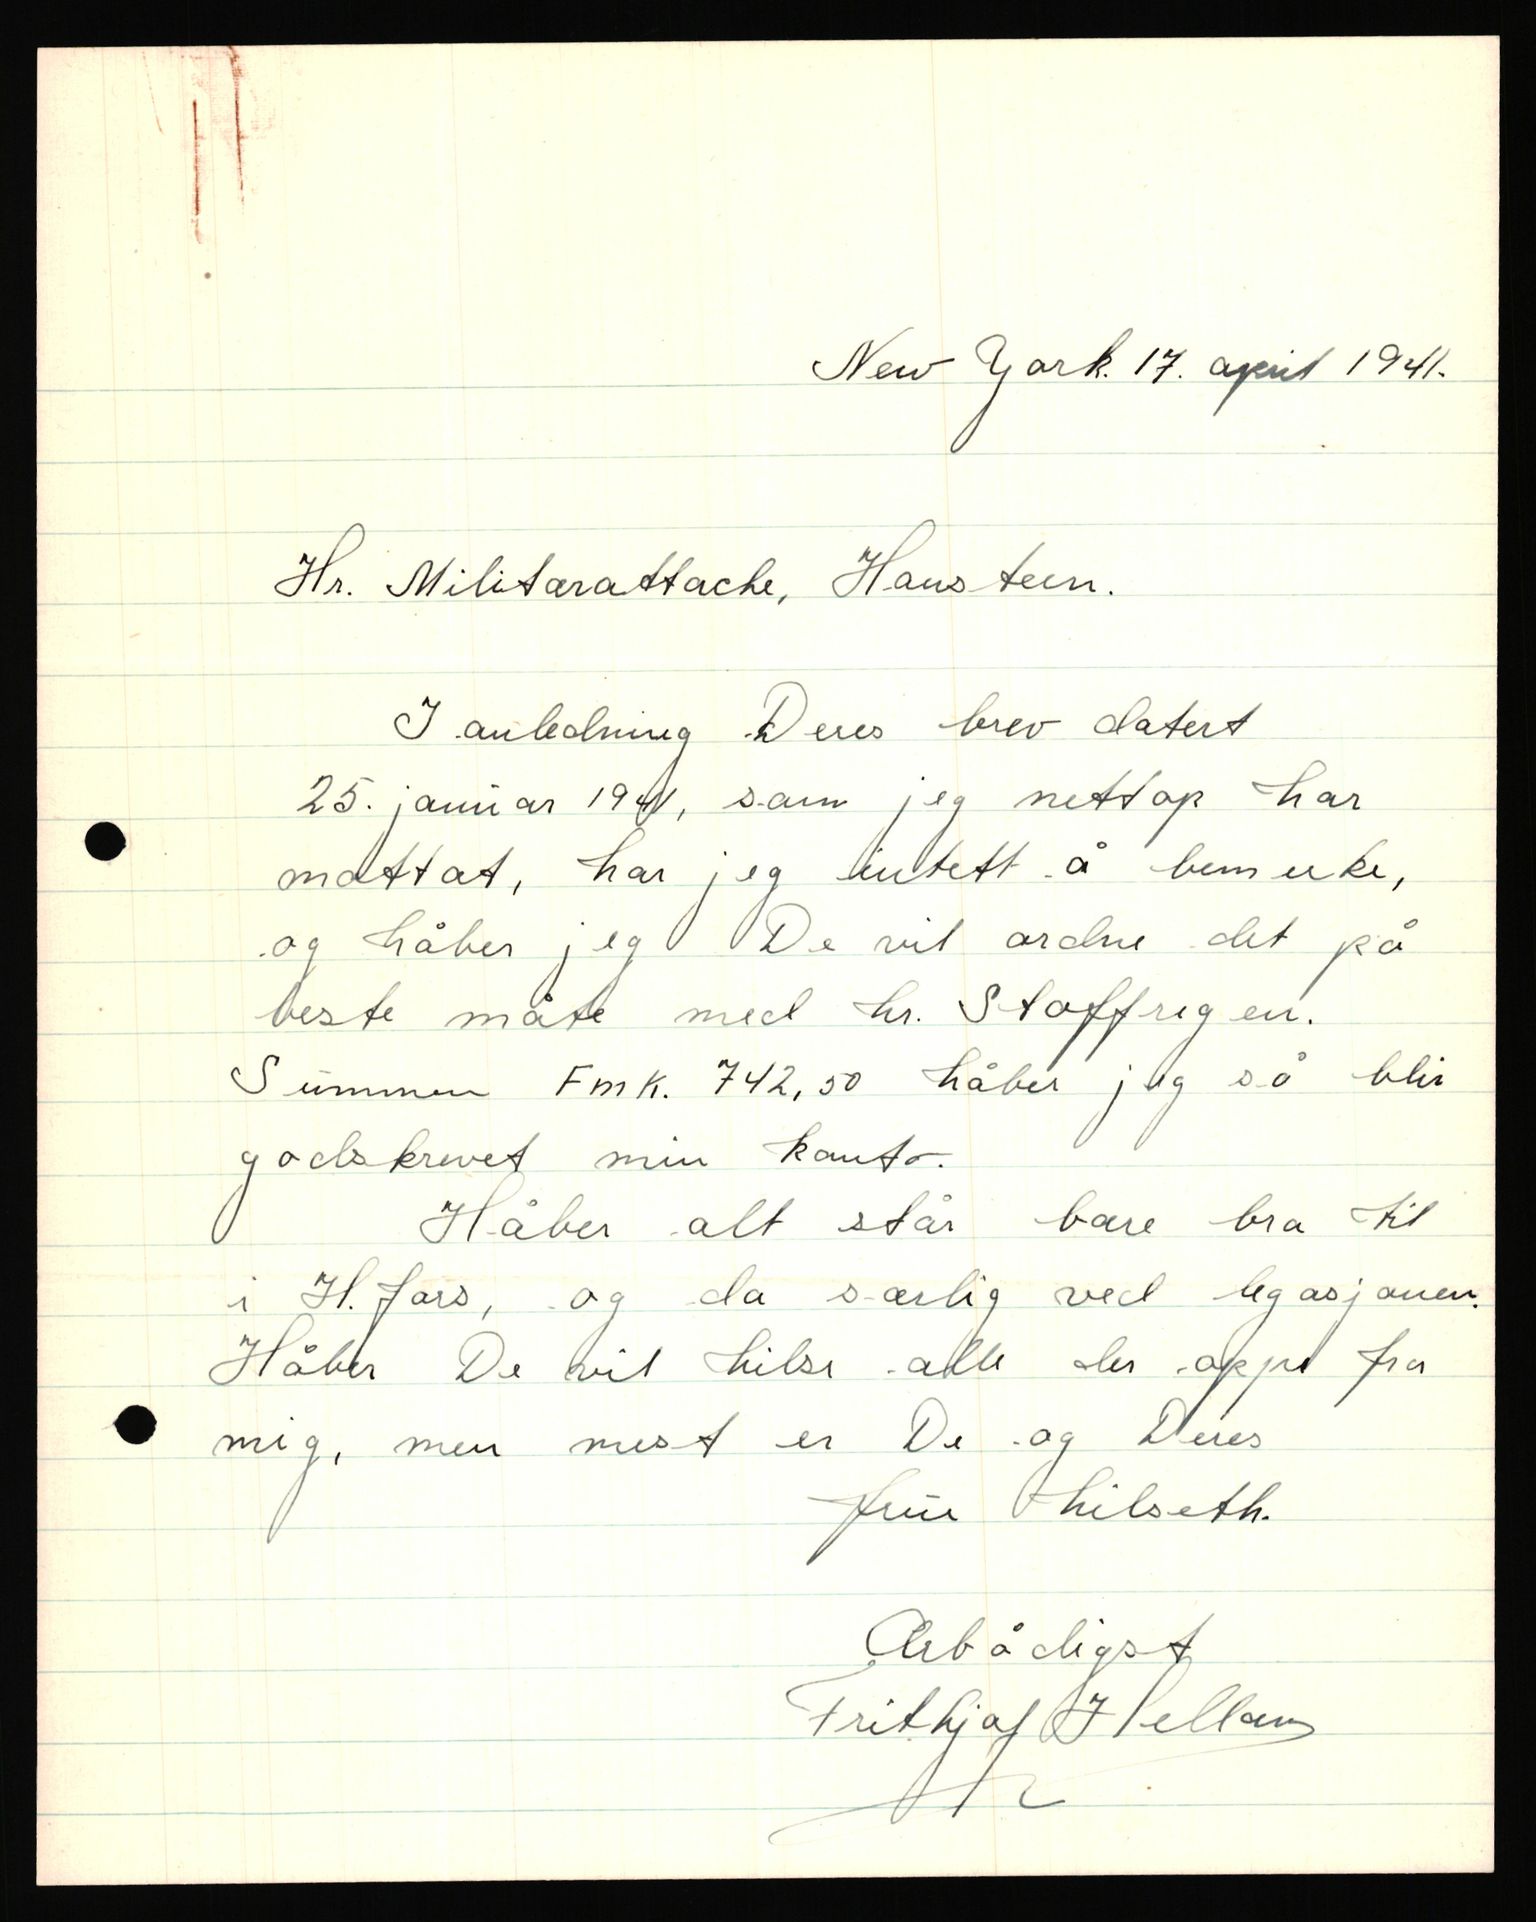 New York. 17. april 1941.
Hr. Militærattache, Hansteen.
I anledning Deres brev datert
25. januar 1941, som jeg nettop har
mottat, har jeg intett å bemerke,
og håber jeg De vil ordne det på
beste måte med hr. Stoffregen.
Summen Fmk. 742,50 håber jeg så blir
godskrevet min konto.
Håber alt står bare bra til
i H.fors, og da særlig ved legasjonen.
Håber De vil hilse alle der oppe fra
mig, men mest er De og Deres
frue hilseth.
Ærbødigst
Frithjof